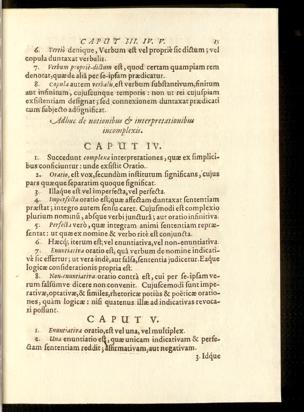 CAPUT III. IV. V. 15
6. Tertiò denique, Verbum est vel propriè sic dictum; vel
copula duntaxat verbalis.
7. Verbum propriè-dictum est, quod certam quampiam rem
denotat, quæ de aliâ per se-ipsam prædicatur.
8. Copula autem verbalis, est verbum substantivum, finitum
aut infinitum, cujuscunque temporis: non ut rei cujuspiam
existentiam designat; sed connexionem duntaxat prædicati
cum subjecto adsignificat.
Adhuc de notionibus & interpretationibus
incomplexis.
CAPUT IV.
1. Succedunt complexæ interpretationes, quæ ex simplici-
bus conficiuntur: unde existit Oratio.
2. Oratio, est vox, secundùm institutum significans, cujus
pars quæque separatim quoque significat.
3. Illaque est vel imperfecta, vel perfecta.
4. Imperfecta oratio est, quæ affectam duntaxat sententiam
præstat; integro autem sensu caret. Cujusmodi est complexio
plurium nominū, absque verbi juncturâ; aut oratio infinitiva.
5. Perfecta verò, quæ integram animi sententiam repræ-
sentat: ut quæ ex nomine & verbo ritè est conjuncta.
6. Hæcq; iterum est, vel enuntiativa, vel non-enuntiativa.
7. Enuntiativa oratio est, quâ verbum de nomine indicati-
vè sic effertur; ut vera inde, aut falsa, sententia judicetur. Eaque
logicæ considerationis propria est.
8. Non-enuntiativa oratio contrà est, cui per se-ipsam ve-
rum falsúmve dicere non convenit. Cujuscemodi sunt impe-
rativæ, optativæ, & similes, rhetoricæ potiùs & poëticæ oratio-
nes, quàm logicæ: nisi quatenus illæ ad indicativas revoca-
ri possunt.
CAPUT V.
1. Enuntiativa oratio, est vel una, vel multiplex.
2. Una enuntiatio est, quæ unicam indicativam & perfe-
ctam sententiam reddit; affirmativam, aut negativam.
3. Idque